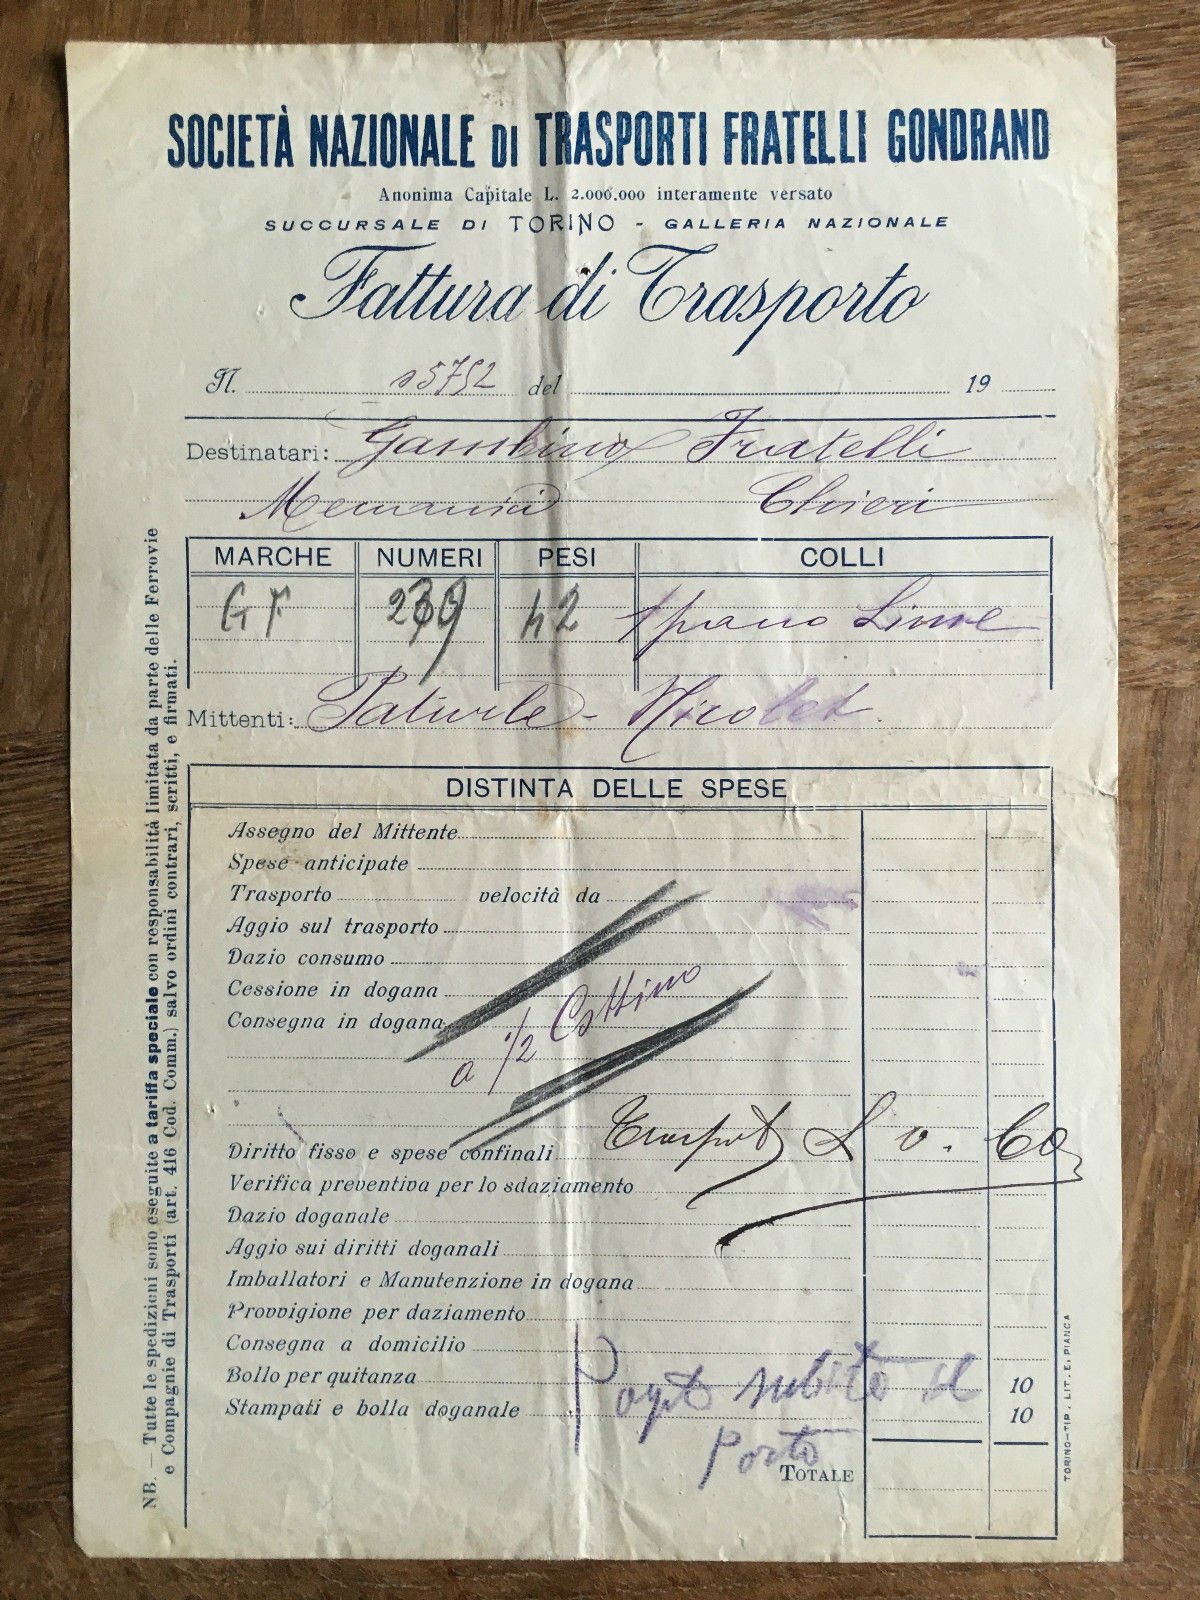 SOCIETÀ NAZIONALE DI TRASPORTI FRATELLI GONDRAND
Anonima Capitale L. 2.000.000 interamente versato
SUCCURSALE DI TORINO - GALLERIA NAZIONALE
Fattura di Trasporto
N. 15752 del 19
Destinatari: Gambino Fratelli
Chieri
MARCHE NUMERI PESI COLLI
GF 42
Mittenti: Paturle - Nicolet
DISTINTA DELLE SPESE
Assegno del Mittente
Spese anticipate
Trasporto velocità da
Aggio sul trasporto
Dazio consumo
Cessione in dogana
Consegna in dogana
a 1/2 Cottino
Diritto fisso e spese confinali Trasporto L 0.60
Verifica preventiva per lo sdaziamento
Dazio doganale
Aggio sui diritti doganali
Imballatori e Manutenzione in dogana
Provvigione per daziamento
Consegna a domicilio
Bollo per quitanza 10
Stampati e bolla doganale 10
subito il
Porto
TOTALE
NB. — Tutte le spedizioni sono eseguite a tariffa speciale con responsabilità limitata da parte delle Ferrovie
e Compagnie di Trasporti (art. 416 Cod. Comm.) salvo ordini contrari, scritti, e firmati.
TORINO-TIP. LIT. E. PIANCA